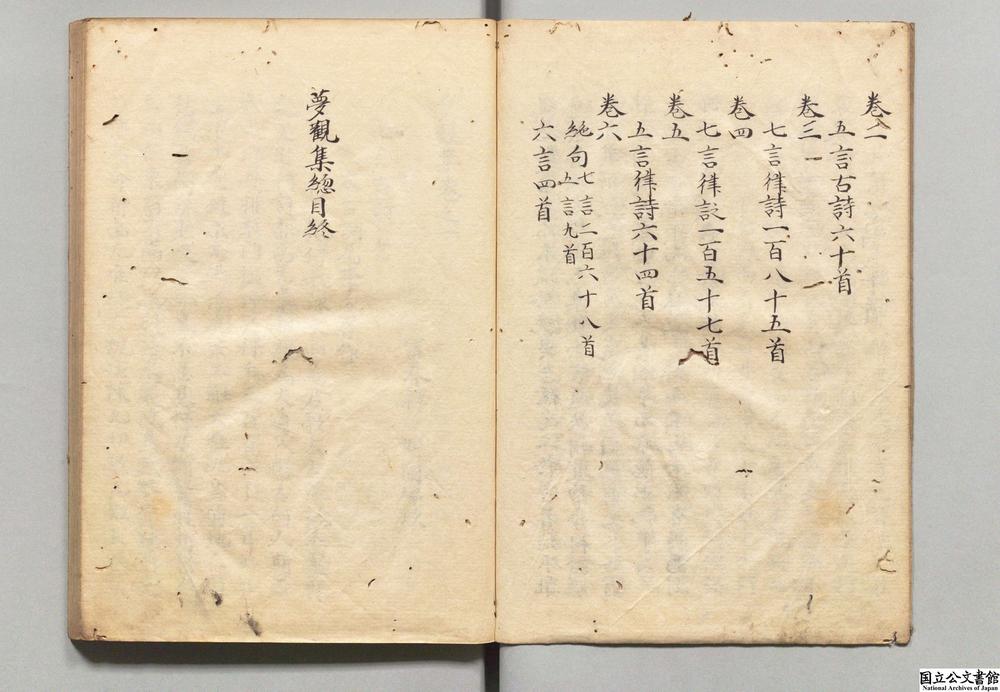 卷二
五言古詩六十首
卷三
七言律詩一百八十五首
卷四
七言律詩一百五十七首
卷五
五言律詩六十四首
卷六
絶句七言二百六十八首
五言九首
六言四首
夢觀集總目終
国立公文書館
National Archives of Japan